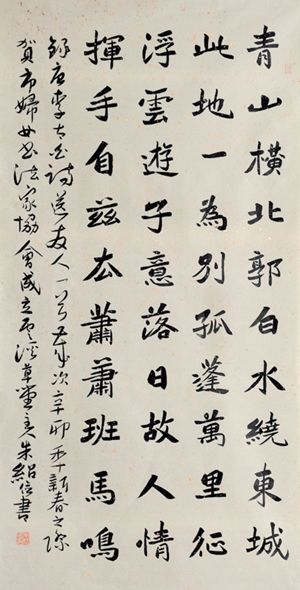 青山橫北郭白水繞東城
此地一為別孤蓬萬里征
浮雲遊子意落日故人情
揮手自茲去蕭蕭班馬鳴
錄唐李太白詩送友人一首歲次辛卯年新春之際
賀市婦女書法家協會成立 草堂主朱紹信書